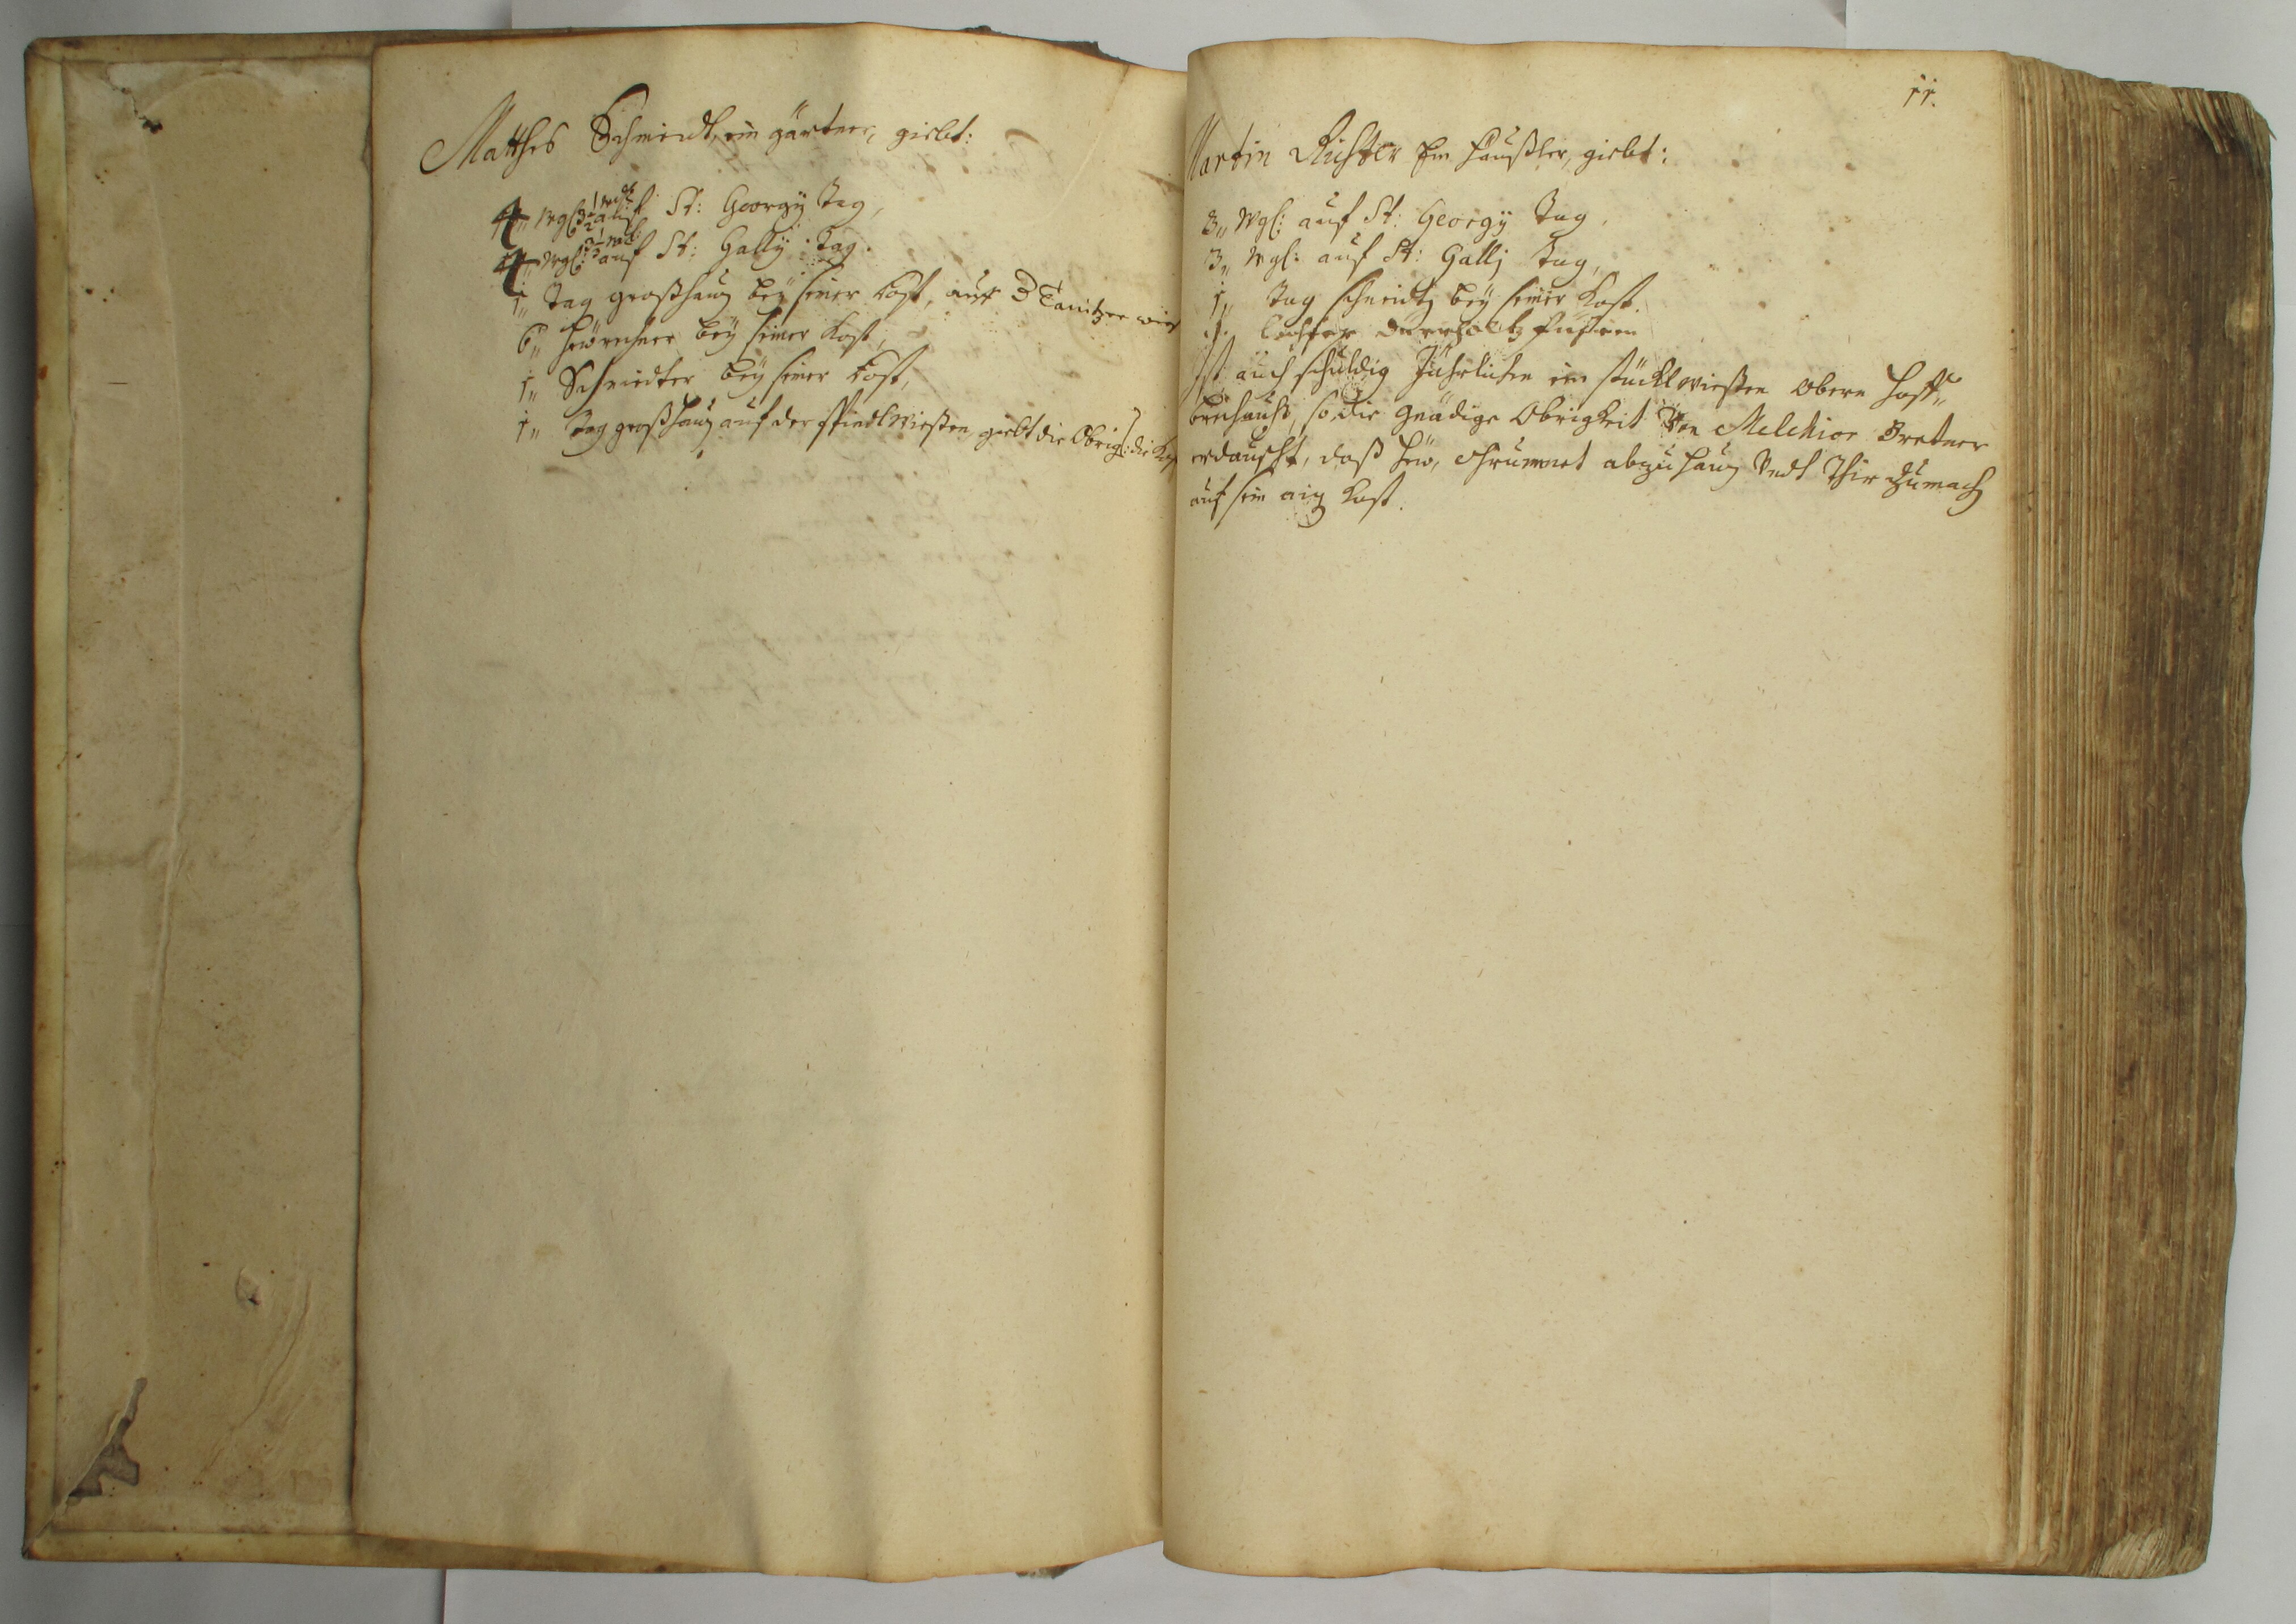 Matthes Schmiedt, ein gärtner, giebt:
4„ wgl: 3 1/2 auf St: Georgy Tag,
4„ wgl: 3 1/2 auf St: Gally Tag.
1„ Tag graßhaug bey seiner Cost, auff
6„ Hewrecher bey seiner Kost,
1„ Schniedter bey seiner Cost,
1„ Tag graßhaug auf der Wießen giebt die Obrigk: die
11.
Martin Richter Ein Häußler, giebt:
3„ Wgl: auf St: Georgy Tag,
3„ Wgl: auf St: Gallj Tag,
1„ Tag schneidtg bey seiner Kost.
1. Claffter
Ist auch schuldig Jährlichen ein stückl wießen obern Hoff„
so die gnädige Obrigkeit Von Melchior Bretner
daß Hew, abzuhaug Vndt zumachg
auf sein aig Cost.